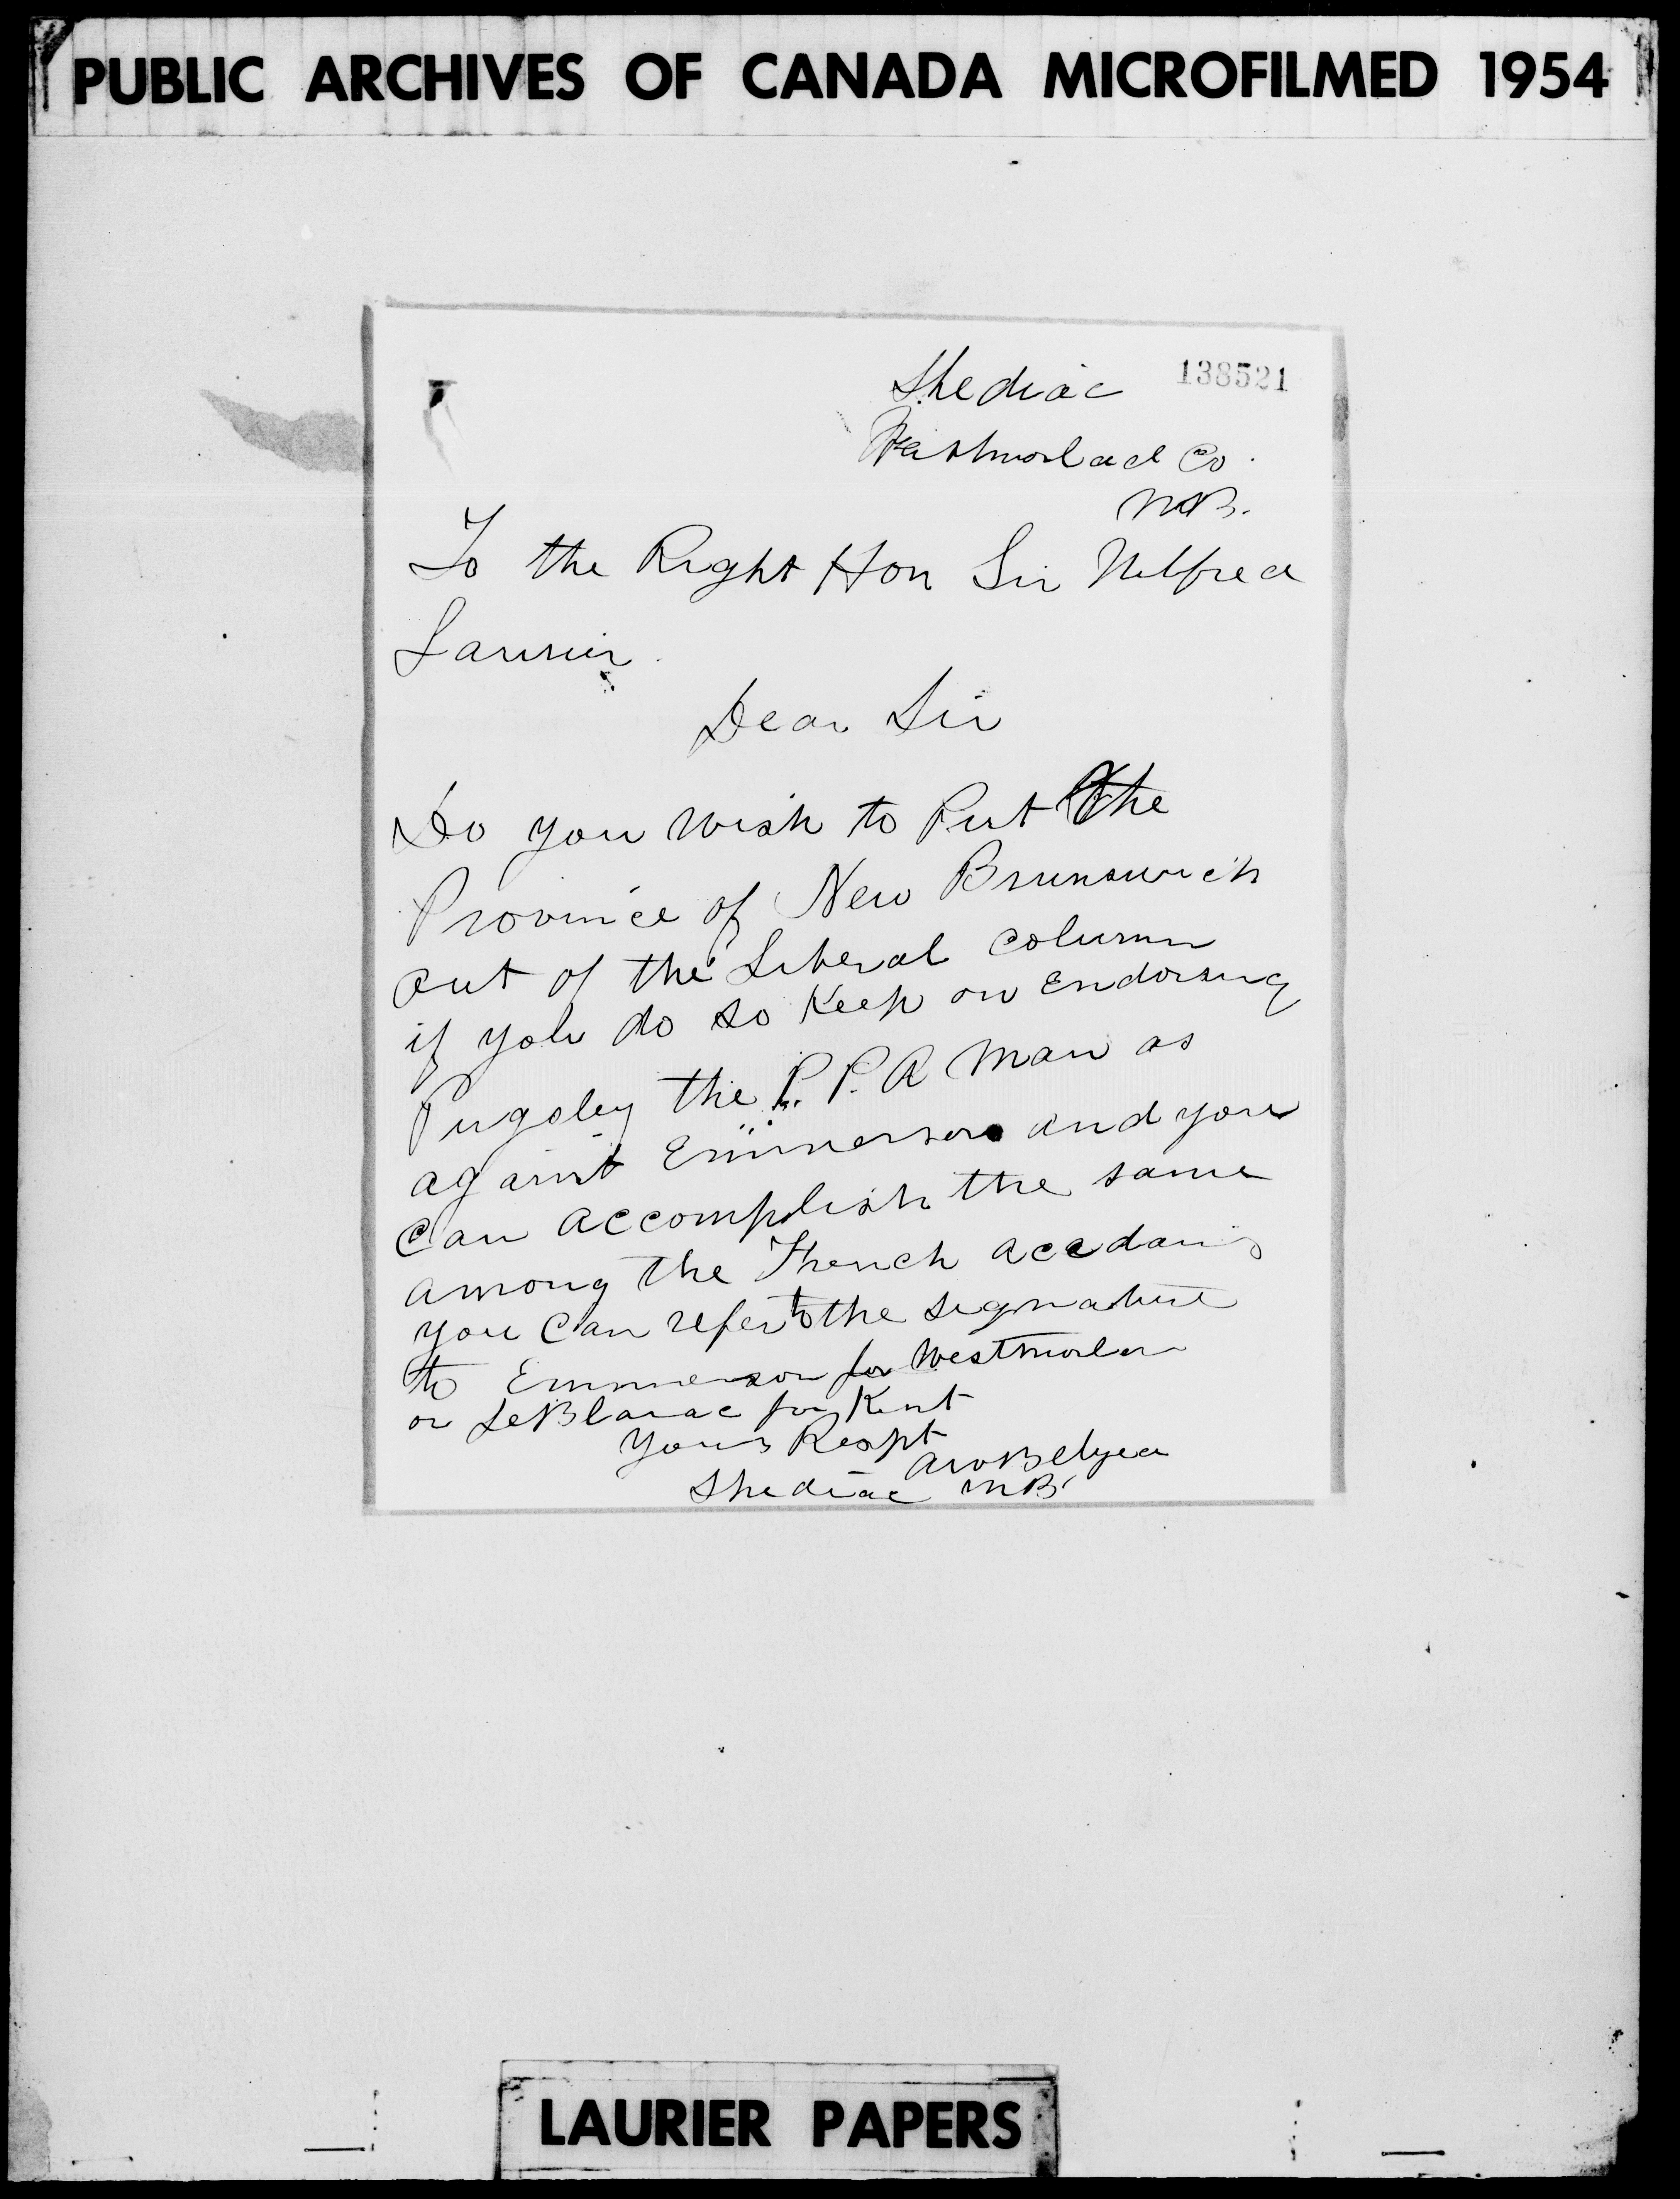 PUBLIC ARCHIVES OF CANADA MICROFILMED 1954
138521
Shediac
Westmorland Co.
N.B.
To the Right Hon Sir Wilfred
Laurier.
Dear Sir
Do you wish to Put the
Province of New Brunswick
out of the Liberal column
if you do so Keep on Endorsing
Pugsley the P. P. A man as
against Emmerson and you
Can accomplish the same
among the French accadains
you Can refer to the signature
to Emmerson for Westmorlan
or LeBlanac for Kent
Yours Respt
AWBelyea
Shediac NB
LAURIER PAPERS